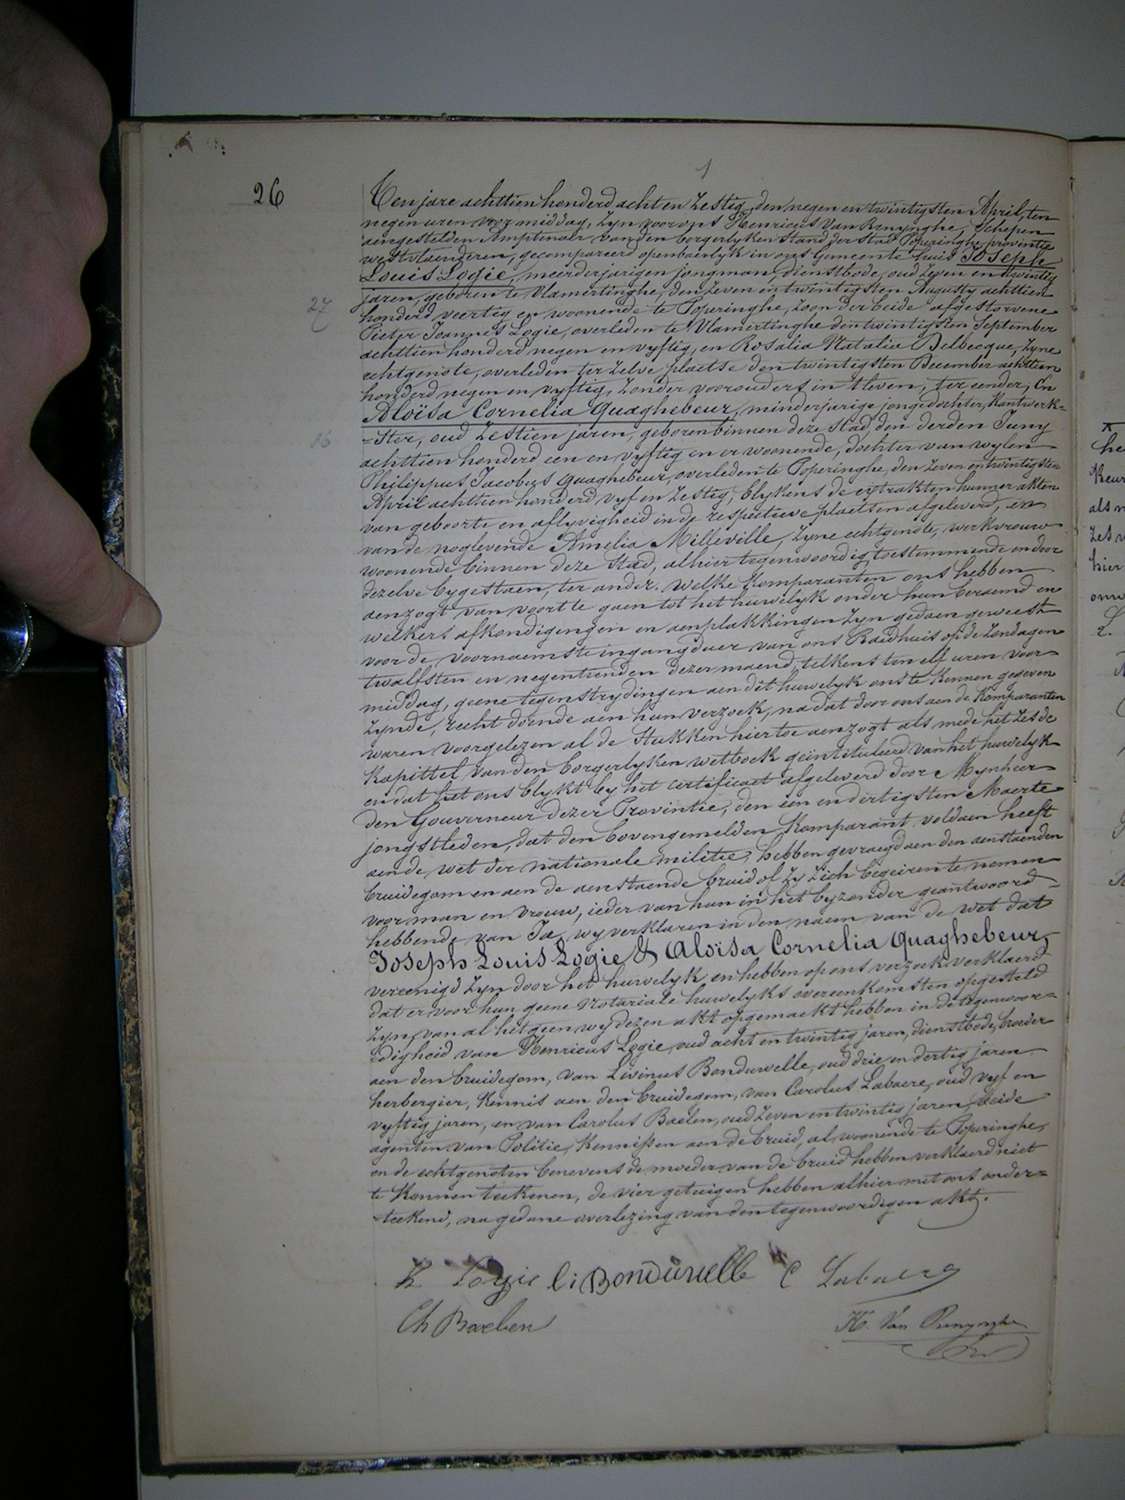 26
1
Ten jare achttien honderd acht en zestig, den negen en twintigsten April, ten
negen uren voor middag, zyn voor ons Henricus Van Renynghe, Schepen
aengestelden Amptenaer van den borgerlyken stand der stad Poperinghe, provintie
westvlaenderen, gecompareerd openbaerlyk in ons Gemeente huis Joseph
Louis Logie, meerderjarigen jongman, dienstbode, oud zeven en twintig
jaren, geboren te Vlamertinghe, den zeven en twintigsten Augusty achttien
27
honderd veertig en woonende te Poperinghe, zoon der beide afgestorvene
Pieter Joannes Logie, overleden te Vlamertinghe den twintigsten September
achttien honderd negen en vyftig, en Rosalia Natalia Delbecque, zyne
echtgenote, overleden ter zelve plaetse den twintigsten December achttien
honderd negen en vyftig, zonder voorouders in 't leven, ter eender; En
Aloïsa Cornelia Quaghebeur, minderjarige jongedochter, Kantwerk=
16
=ster, oud zestien jaren, geboren binnen deze stad, den derden Juny
achttien honderd een en vyftig en er woonende, dochter van wylen
Philippus Jacobus Quaghebeur, overleden te Poperinghe, den zeven en twintigsten
April achttien honderd vyf en zestig, blykens de extrakten hunner akten
van geboorte en aflyvigheid in de respective plaetsen afgeleverd, en
van de noglevende Amelia Milleville, zyne echtgenote, werkvrouw
woonende binnen deze stad, alhier tegenwoordig, toestemmende en door
dezelve bygestaen, ter ander. welke Komparanten ons hebben
aenzogt van voort te gaen tot het huwelyk onder hun beraemd en
welkers afkondigingen en aenplakkingen zyn gedaen geweest
voor de voornaemste ingangduer van ons Raedhuis op de zondagen
twalfsten en negentienden dezer maend, telkens ten elf uren voor
middag, geene tegenstrydingen aen dit huwelyk ons te kennen gegeven
zynde, recht doende aen hun verzoek, na dat door ons aen de Komparanten
waren voorgelezen al de stukken hiertoe aenzogt als mede het zesde
kapittel van den borgerlyken wetboek geintituleerd van het huwelyk
en dat het ons blykt by het certificaet afgeleverd door Mynheer
den Gouverneur dezer Provintie, den een en dertigsten Maerte
jongstleden, dat den bovengemelden Komparant voldaen heeft
aende wet der nationale militie, hebben gevraegd aen den aenstaenden
bruidegom en aen de aenstaende bruid of zy zich begeiren te nemen
voor man en vrouw, ieder van hun in het byzonder geantwoord
hebbende van Ja, wy verklaren in den naem van de wet dat
Joseph Louis Logie & Aloïsa Cornelia Quaghebeur,
vereenigd zyn door het huwelyk en hebben op ons verzoek verklaerd
dat er voor hun geene Notariale huwelyks overeenkomsten opgesteld
zyn, van al het geen wy dezen akt opgemaekt hebben in de tegenwoor=
=digheid van Henricus Logie, oud acht en twintig jaren, dienstbode, broeder
aen den bruidegom, van Livinus Bonduwelle, oud drie en dertig jaren
herbergier, Kennis aen den bruidegom, van Carolus Labaere, oud vyf en
vyftig jaren, en van Carolus Baelen, oud zeven en twintig jaren, beide
agenten van Politie, Kennissen aen de bruid, al woonende te Poperinghe,
en de echtgenoten benevens de moeder van de bruid hebben verklaerd niet
te Konnen teekenen, de vier getuigen hebben alhier met ons onder=
=teekend, na gedane overlezing van den tegenwoordigen akt.
H Logie li Bonduwelle C Labaere
Ch Baelen
H. Van Renynghe